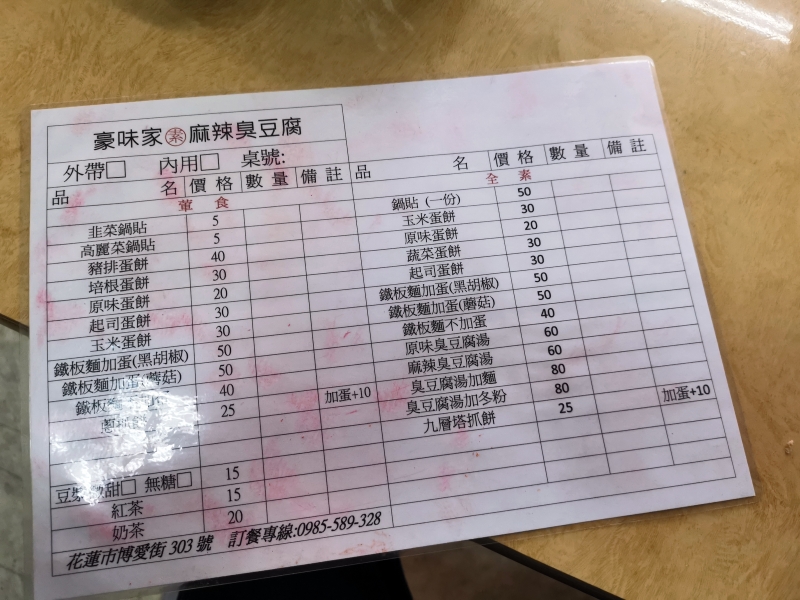 豪味家 素 麻辣臭豆腐
外帶□ 內用□ 桌號:
品 名 價 格 數 量 備 註
葷 食
韭菜鍋貼 5
高麗菜鍋貼 5
豬排蛋餅 40
培根蛋餅 30
原味蛋餅 20
起司蛋餅 30
玉米蛋餅 30
鐵板麵加蛋(黑胡椒) 50
鐵板麵加蛋(蘑菇) 50
鐵板 40
25 加蛋+10
豆漿 甜□ 無糖□ 15
紅茶 15
奶茶 20
花蓮市博愛街 303 號 訂餐專線:0985-589-328
品 名 價 格 數 量 備 註
全 素
鍋貼 (一份) 50
玉米蛋餅 30
原味蛋餅 20
蔬菜蛋餅 30
起司蛋餅 30
鐵板麵加蛋(黑胡椒) 50
鐵板麵加蛋(蘑菇) 50
鐵板麵不加蛋 40
原味臭豆腐湯 60
麻辣臭豆腐湯 60
臭豆腐湯加麵 80
臭豆腐湯加冬粉 80
九層塔抓餅 25 加蛋+10